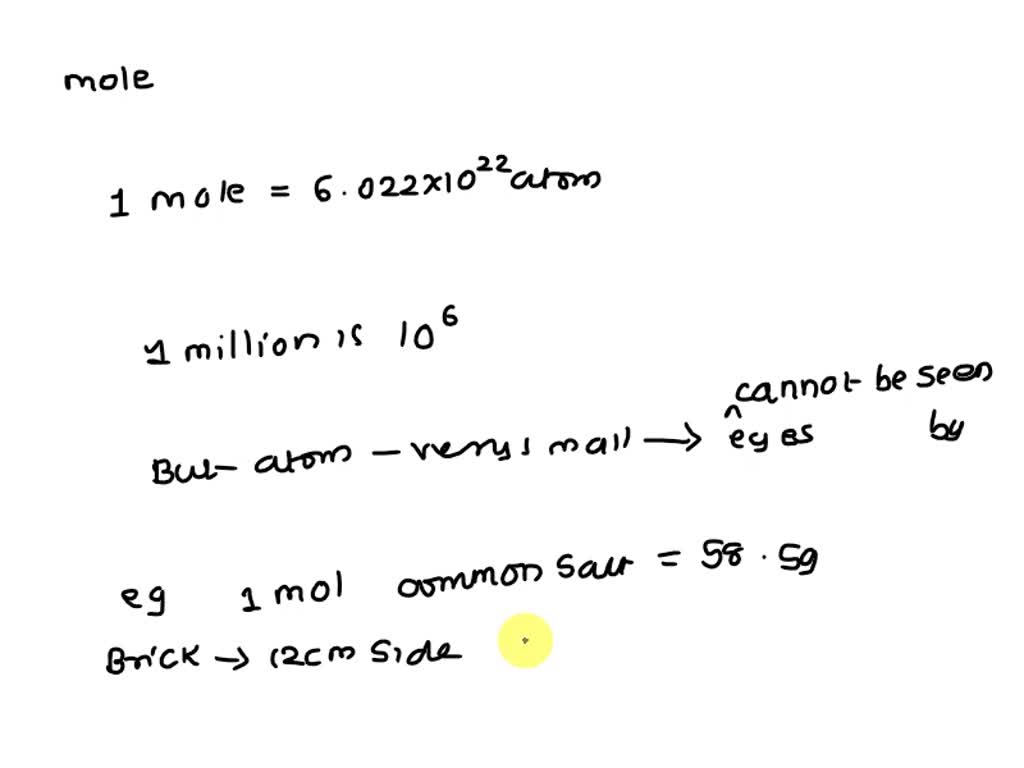 mole
1 mole = 6.022×10²² atom
1 million is 10⁶
cannot be seen
But atom – very small → ^ eyes by
eg 1 mol common salt = 58.5g
Brick → 12cm side